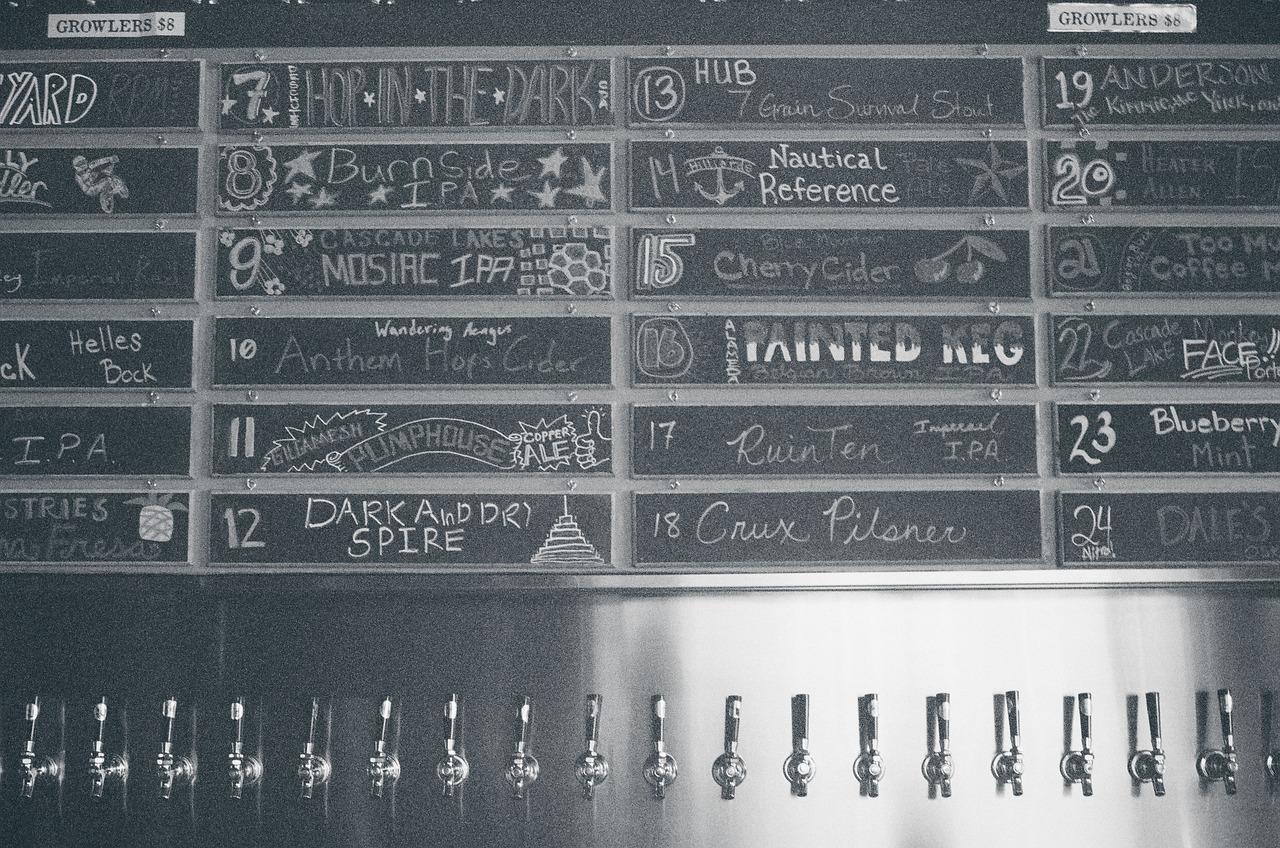 GROWLERS $8
GROWLERS $8
YARD
I.P.A.
Helles
Bock
STRIES
Fresa
7
HOP IN THE DARK
8
BurnSide
IPA
9
CASCADE LAKES
MOSIAC IPA
10
Wandering Aengus
Anthem Hops Cider
11
GILGAMESH
PUMPHOUSE
COPPER
ALE
12
DARK AnD DRY
SPIRE
13
HUB
7 Grain Survival Stout
14
Hilliards
Nautical
Reference
Pale
Ale
15
Blue Mountain
Cherry Cider
16
ALAMEDA
PAINTED KEG
Belgian Brown IPA
17
RuinTen
Imperial
I.P.A.
18
Crux Pilsner
19
ANDERSON
The Kimmie, the Yink, an
20
HEATER
ALLEN
21
Too Mu
Coffee M
22
Cascade
LAKE
Monkey
FACE
Porte
23
Blueberry
Mint
24
Nitro!
DALE'S